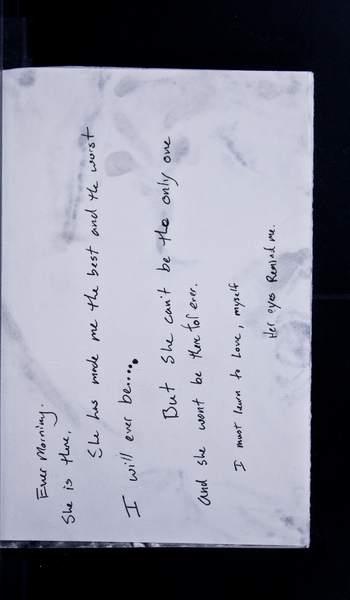 Ever Morning.
She is there,
She has made me the best and the worst
I will ever be....
But she can't be the only one
and she wont be there for ever.
I must learn to Love, myself
Her eyes Remind me.